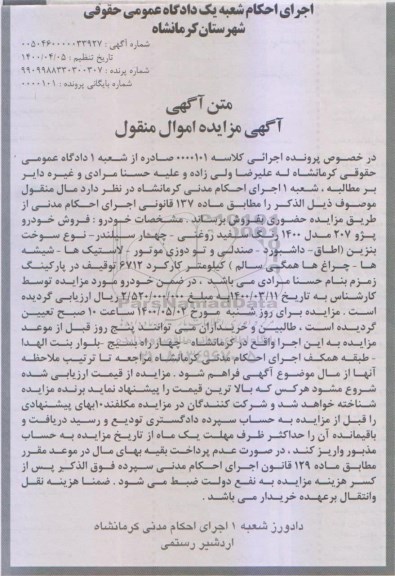 اجرای احکام شعبه یک دادگاه عمومی حقوقی
شهرستان کرمانشاه
شماره آگهی : ۰۰۵۰۴۶۰۰۰۰۰۳۳۹۲۷
تاریخ تنظیم : ۱۴۰۰/۰۴/۰۵
شماره پرونده : ۹۹۰۹۹۸۸۳۳۰۳۰۰۳۰۷
شماره بایگانی پرونده : ۰۰۰۰۱۰۱
متن آگهی
آگهی مزایده اموال منقول
در خصوص پرونده اجرائی کلاسه ۰۰۰۰۱۰۱ صادره از شعبه ۱ دادگاه عمومی
حقوقی کرمانشاه له علیرضا ولی زاده و علیه حسنا مرادی و غیره دایر
بر مطالبه ، شعبه ۱ اجرای احکام مدنی کرمانشاه در نظر دارد مال منقول
موصوف ذیل الذکر را مطابق ماده ۱۳۷ قانونی اجرای احکام مدنی از
طریق مزایده حضوری بفروش برساند . مشخصات خودرو : فروش خودرو
پژو ۲۰۷ مدل ۱۴۰۰ رنگ سفید روغنی - چهار سیلندر- نوع سوخت
بنزین (اطاق- داشبورد - صندلی و تو دوزی موتور - لاستیک ها - شیشه
ها - چراغ ها همگی سالم ) کیلومتر کارکرد ۶۷۱۲ توقیف در پارکینگ
زمزم بنام حسنا مرادی می باشد ، در ضمن خودرو مورد مزایده توسط
کارشناس به تاریخ ۱۴۰۰/۰۳/۱۱ به مبلغ ۲/۵۳۰/۰۰۰/۰۰۰ ریال ارزیابی گردیده
است . مزایده برای روز شنبه مورخ ۱۴۰۰/۰۵/۰۲ ساعت ۱۰ صبح تعیین
گردیده است ، طالبین و خریداران می توانند پنج روز قبل از موعد
مزایده به این اجرا واقع در کرمانشاه - چهارراه بسیج -بلوار بنت الهدا
- طبقه همکف اجرای احکام مدنی کرمانشاه مراجعه تا ترتیب ملاحظه
آنها از مال موضوع آگهی فراهم شود . مزایده از قیمت ارزیابی شده
شروع مشود هرکس که بالا ترین قیمت را پیشنهاد نماید برنده مزایده
شناخته خواهد شد و شرکت کنندگان در مزایده مکلفند۱۰بهای پیشنهادی
را قبل از مزایده به حساب سپرده دادگستری تودیع و رسید دریافت و
باقیمانده آن را حداکثر ظرف مهلت یک ماه از تاریخ مزایده به حساب
مذبور واریز کند ، در صورت عدم پرداخت بقیه بهای مال در موعد مقرر
مطابق ماده ۱۲۹ قانون اجرای احکام مدنی سپرده فوق الذکر پس از
کسر هزینه مزایده به نفع دولت ضبط می شود . ضمنا هزینه نقل
وانتقال برعهده خریدار می باشد .
دادورز شعبه ۱ اجرای احکام مدنی کرمانشاه
اردشیر رستمی